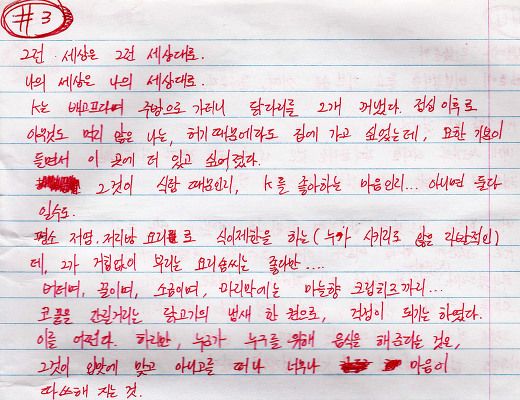 #3
그건 세상은 그런 세상대로.
나의 세상은 나의 세상대로.
K는 배고프다며 주방으로 가더니 닭다리를 2개 꺼냈다. 점심 이후로
아무것도 먹지 않은 나는, 허기 때문에라도 집에 가고 싶었는데, 묘한 기분이
들면서 이 곳에 더 있고 싶어졌다.
그것이 식탐 때문인지, K를 좋아하는 마음인지... 아니면 둘다
일수도.
평소 저염, 저지방 요리로 식이제한을 하는 (누가 시키지도 않은 자발적인)
데, 그가 거침없이 부리는 요리솜씨는 좋다만....
버터며, 꿀이며, 소금이며, 마지막에는 마늘향 크림치즈까지...
코 끝을 간질거리는 닭고기의 냄새 한 편으로, 걱정이 되기는 하였다.
이를 어쩐다. 하지만, 누군가 누구를 위해 음식을 해준다는 것은,
그것이 입맛에 맞고 아니고를 떠나 너무나 마음이
따스해 지는 것.